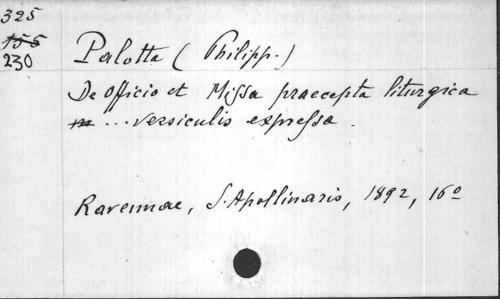 325
155
230
Palotta (Philipp.)
De Officio et Missa praecepta liturgica
... versiculis expressa.
Ravennae, S. Apollinaris, 1892, 16º